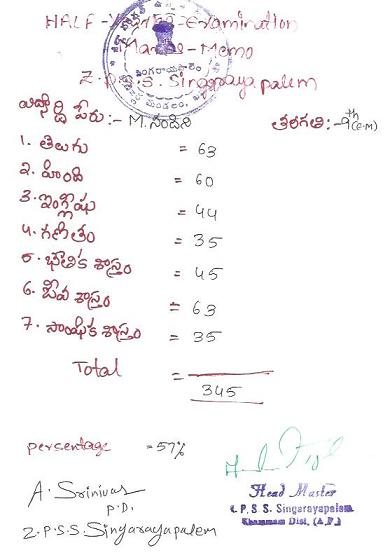 HALF-Yearly-Examination
Marks-Memo
సింగరాయపాలెం
మండలం,
Z.P.S.S. Singarayapalem
విద్యార్థి పేరు:- M.నందిని తరగతి:-9th (e.m)
1. తెలుగు = 63
2. హింది = 60
3. ఇంగ్లీషు = 44
4. గణితం = 35
5. భౌతిక శాస్త్రం = 45
6. జీవ శాస్త్రం = 63
7. సాంఘిక శాస్త్రం = 35
Total =
345
percentage =57%
A. Srinivas
P.D.
Z.P.S.S. Singarayapalem
Head Master
Z.P.S.S. Singarayapalem
Khammam Dist. (A.P.)